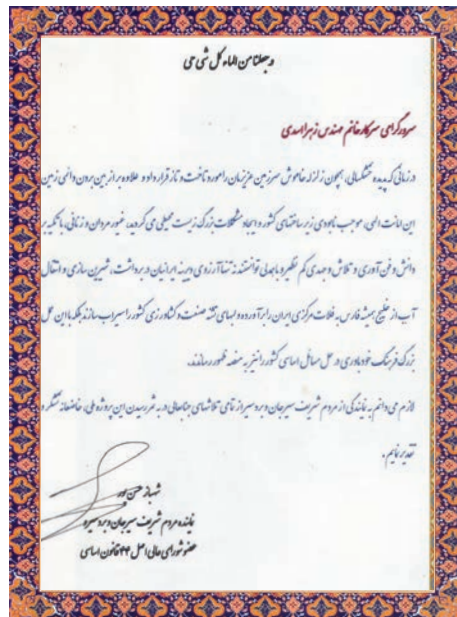 و جعلنا من الماء کل شی حی
سرور گرامی سرکار خانم مهندس زهرا اسدی
در زمانی که پدیده خشکسالی، همچون زلزله خاموش سرزمین عزیزمان را مورد تاخت و تاز قرار داد و علاوه بر از بین بردن دائمی زمین
این امانت الهی، موجب نابودی زیر ساختهای کشور و ایجاد مشکلات بزرگ زیست محیطی می گردید، غیور مردان و زنانی، با تکیه بر
دانش و فن آوری و تلاش و جهدی کم نظیر و با همدلی توانستند نه تنها آرزوی دیرینه ایرانیان در برداشت، شیرین سازی و انتقال
آب از خلیج همیشه فارس به فلات مرکزی ایران را برآورده و لبهای تشنه صنعت و کشاورزی کشور را سیراب سازند بلکه با این عمل
بزرگ فرهنگ خودباوری در حل مسائل اساسی کشور را نیز به منصه ظهور رساندند.
لازم می دانم به نمایندگی از مردم شریف سیرجان و بردسیر از تمامی تلاشهای جنابعالی در به ثمر رسیدن این پروژه ملی، خاضعانه تشکر و
تقدیر نمایم.
شهباز حسن پور
نماینده مردم شریف سیرجان و بردسیر و
عضو شورای عالی اصل ۴۴ قانون اساسی